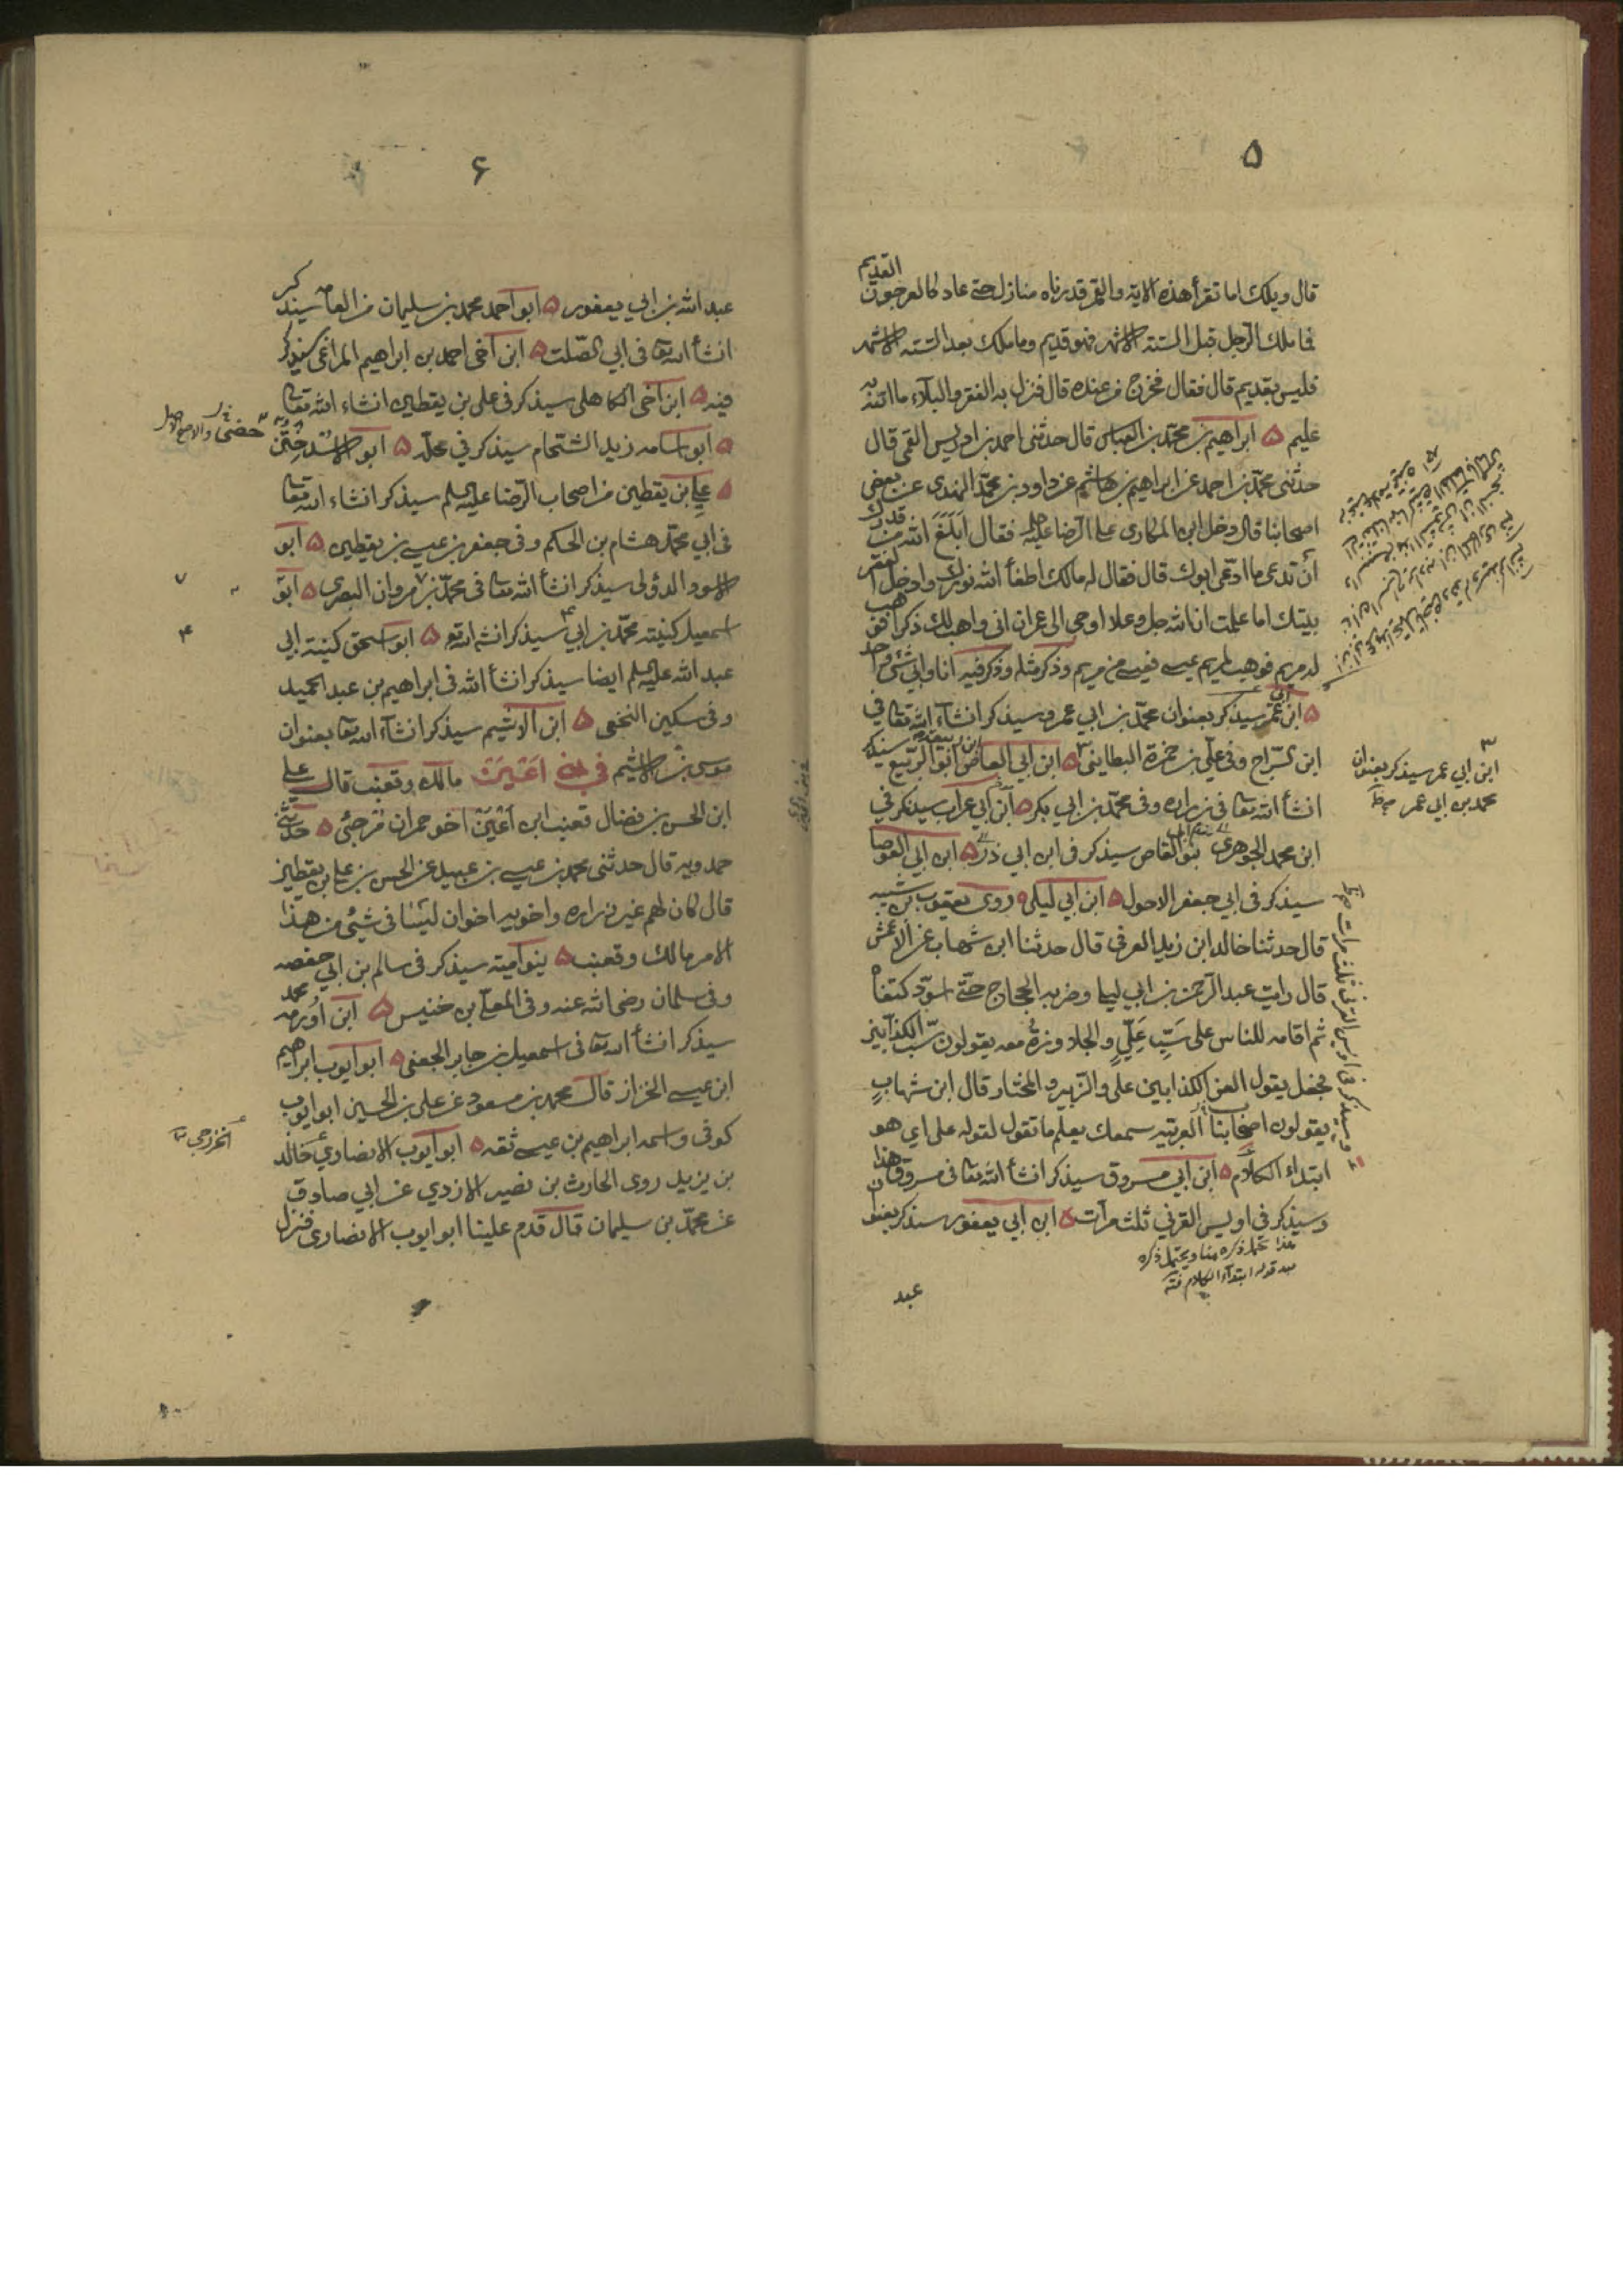 ٥
القديم
قال ويلك اما تقرأ هذه الاية والقمر قدرناه منازل حتى عاد كالعرجون
فما ملك الرجل قبل الستة الاشهر فهو قديم وما ملك بعد الستة الاشهر
فليس بقديم قال فقال فخرج من عنده قال فنزل به الفقر والبلاء ما الله به
عليم ٥ ابراهيم بن محمد بن العباس قال حدثنى احمد بن ادريس القمى قال
حدثنى محمد بن احمد عن ابراهيم بن هاشم عن داود بن محمد النهدى عن بعض
اصحابنا قال دخل ابن المكارى على الرضا عليه فقال ابلغ الله من قدرك
ان تدعى ما ادعى ابوك قال فقال له مالك اطفأ الله نورك وادخل الفقر
بيتك اما علمت ان الله جل وعلا اوحى الى عمران انى واهب لك ذكرا فوهب
له مريم فوهب لمريم عيسى فعيسى من مريم وذكر مثله وذكر فيه انا وابى شئ واحد
٥ ابن عمر سيذكر بعنوان محمد بن ابي عمر وسيذكر انشاء الله تعالى في
ابن السراج وفى علي بن حمزة البطاينى ٥ ابن ابي العاص ابو الربيع سيذكر
انشأ الله تعالى فى زراره وفى محمد بن ابي بكر ٥ ابن ابي عراب سيذكر في
ابن محمد الجوهري بنو القاص سيذكر فى ابن ابي ذر ٥ ابن ابي العوصا
سيذكر فى ابي جعفر الاحول ٥ ابن ابي ليلى ٥ روى يعقوب بن شيبه
قال حدثنا خالد ابن زيد العرفى قال حدثنا ابن شهاب عن الاعمش
قال رايت عبد الرحمن بن ابي ليلى وضربه الحجاج حتى اسود كتفاه
ثم اقامه للناس على سب علي والجلاوزة معه يقولون سب الكذابين
فجعل يقول العن الكذابين على والزبير والمختار قال ابن شهاب
يقولون اصحابنا العربية سمعك يعلم ما تقول لقوله على اي هو
ابتداء الكلام ٥ ابن ابي مسروق سيذكر انشأ الله تعالى فى مسروق هذا
وسيذكر فى اويس القرني ثلث مرات ٥ ابن ابي يعفور سيذكر بعنوان
هذا يحتمل ذكره هنا ويحتمل ذكره
بعد قوله ابتداء الكلام فتـ
عبد
ابن ابي عمر سيذكر بعنوان
محمد بن ابي عمر
وسيذكر فى اويس القرنى ثلث مرات
٦
عبد الله بن ابي يعفور ٥ ابو احمد محمد بن سليمان من العامه سيذكر
انشأ الله تعا فى ابي الصلت ٥ ابن اخى احمد بن ابراهيم المراغى سيذكر
فيه ٥ ابن اخى الكاهلى سيذكر فى على بن يقطين انشاء الله تعالى
٥ ابو اسامه زيد الشحام سيذكر في محله ٥ ابو الاسد ختن
٥ علي بن يقطين من اصحاب الرضا عليه السلم سيذكر انشاء الله تعالى
فى ابي محمد هشام بن الحكم وفى جعفر بن عيسى بن يقطين ٥ ابو
الاسود الدؤلى سيذكر انشأ الله تعالى فى محمد بن مروان البصرى ٥ ابو
اسمعيل كنيته محمد بن ابي سيذكر انشاء الله تع ٥ ابو اسحق كنيته ابي
عبد الله عليه السلم ايضا سيذكر انشأ الله فى ابراهيم بن عبد الحميد
وفى سكين النخعى ٥ ابن الاشيم سيذكر انشآء الله تعا بعنوان
موسى بن الاشيم في بني اعين مالك وقعنب قال على
ابن الحسن بن فضال قعنب ابن اعين اخو حمران مرجئى ٥ حدثنى
حمدويه قال حدثنى محمد بن عيسى بن عبيد عن الحسن بن على بن يقطين
قال كان لهم غير زراره واخويه اخوان ليسا فى شئ من هذا
الامر مالك وقعنب ٥ بنو امية سيذكر فى سالم بن ابي حفصه
وفى سلمان رضى الله عنه وفى المعلى بن خنيس ٥ ابن اورمه محمد
سيذكر انشأ الله تعا فى اسمعيل بن جابر الجعفى ٥ ابو ايوب ابراهيم
ابن عيسى الخزاز قال محمد بن مسعود عن على بن الحسين ابو ايوب
كوفى واسمه ابراهيم بن عيسى ثقه ٥ ابو ايوب الانصاري خالد
بن يزيد روى الحارث بن نصير الازدي عن ابي صادق
عن محمد بن سليمان قال قدم علينا ابو ايوب الانصارى فنزل
٧
٤
الخزرجى